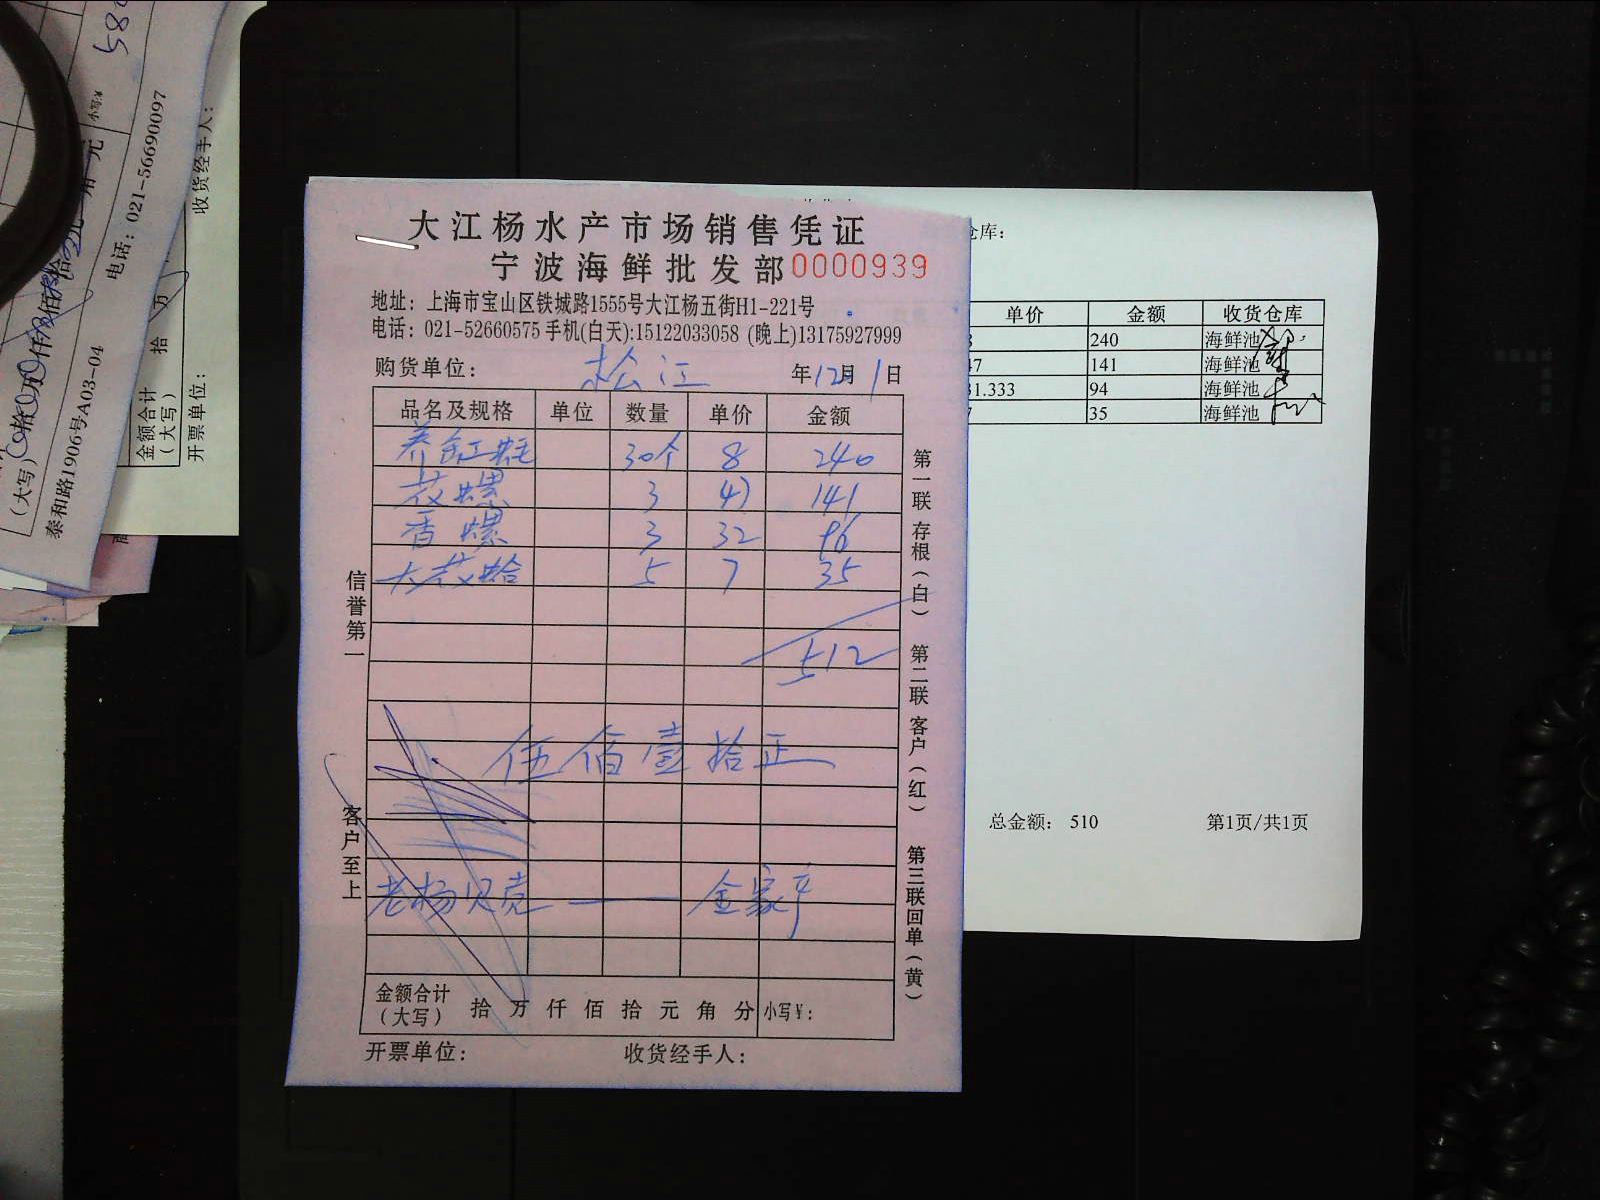 大江杨水产市场销售凭证
宁波海鲜批发部 0000939
地址：上海市宝山区铁城路1555号大江杨五街H1-221号
电话：021-52660575 手机(白天):15122033058 (晚上)13175927999
购货单位： 松江 年12月1日
品名及规格 单位 数量 单价 金额
30个 8 240
花螺 3 47 141
香螺 3 32 96
大花蛤 5 7 35
512
伍佰壹拾正
老杨贝壳 —— 金家
金额合计（大写） 拾 万 仟 佰 拾 元 角 分 小写￥：
开票单位： 收货经手人：
信誉第一
客户至上
第一联 存根（白） 第二联 客户（红） 第三联 回单（黄）
仓库：
单价 金额 收货仓库
240 海鲜池
47 141 海鲜池
31.333 94 海鲜池
35 海鲜池
总金额： 510 第1页/共1页
585
小写￥
元
（大写）
泰和路1906号A03-04 电话：021-56690097
金额合计（大写） 拾 万
开票单位： 收货经手人：